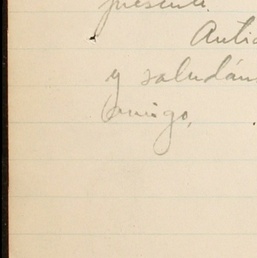 presente.
Antic
y saludán
amigo,